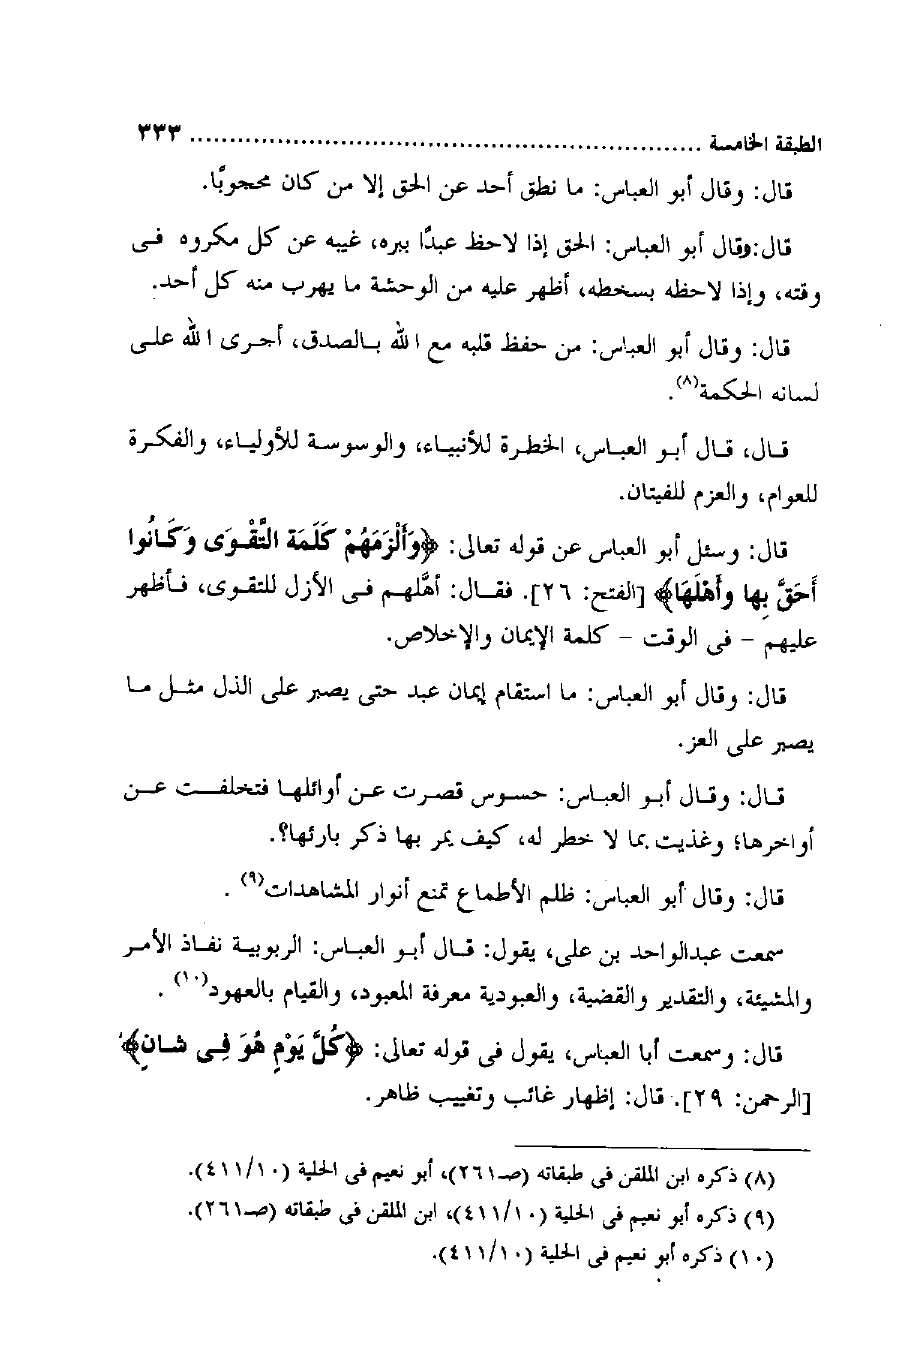 الطبقة الخامسة ................................................................ ٣٣٣
قال: وقال أبو العباس: ما نطق أحد عن الحق إلا من كان محجوبًا.
قال:وقال أبو العباس: الحق إذا لاحظ عبدًا ببره، غيبه عن كل مكروه فى
وقته، وإذا لاحظه بسخطه، أظهر عليه من الوحشة ما يهرب منه كل أحد.
قال: وقال أبو العباس: من حفظ قلبه مع الله بالصدق، أجرى الله على
لسانه الحكمة(٨).
قال، قال أبو العباس، الخطرة للأنبياء، والوسوسة للأولياء، والفكرة
للعوام، والعزم للفيتان.
قال: وسئل أبو العباس عن قوله تعالى: ﴿وَأَلْزَمَهُمْ كَلَمَةَ التَّقْوَى وَكَانُوا
أَحَقَّ بِها وأَهْلَهَا﴾ [الفتح: ٢٦]. فقال: أهَّلهم فى الأزل للتقوى، فأظهر
عليهم - فى الوقت - كلمة الإيمان والإخلاص.
قال: وقال أبو العباس: ما استقام إيمان عبد حتى يصبر على الذل مثل ما
يصبر على العز.
قال: وقال أبو العباس: حسوس قصرت عن أوائلها فتخلفت عن
أواخرها؛ وغذيت بما لا خطر له، كيف يمر بها ذكر بارئها؟.
قال: وقال أبو العباس: ظلم الأطماع تمنع أنوار المشاهدات(٩) .
سمعت عبدالواحد بن على، يقول: قال أبو العباس: الربوبية نفاذ الأمر
والمشيئة، والتقدير والقضية، والعبودية معرفة المعبود، والقيام بالعهود(١٠) .
قال: وسمعت أبا العباس، يقول فى قوله تعالى: ﴿كُلَّ يَوْمٍ هُوَ فِى شانٍ﴾
[الرحمن: ٢٩]. قال: إظهار غائب وتغييب ظاهر.
(٨) ذكره ابن الملقن فى طبقاته (صـ٢٦١)، أبو نعيم فى الحلية (٤١١/١٠).
(٩) ذكره أبو نعيم فى الحلية (٤١١/١٠)، ابن الملقن فى طبقاته (صـ٢٦١).
(١٠) ذكره أبو نعيم فى الحلية (٤١١/١٠).